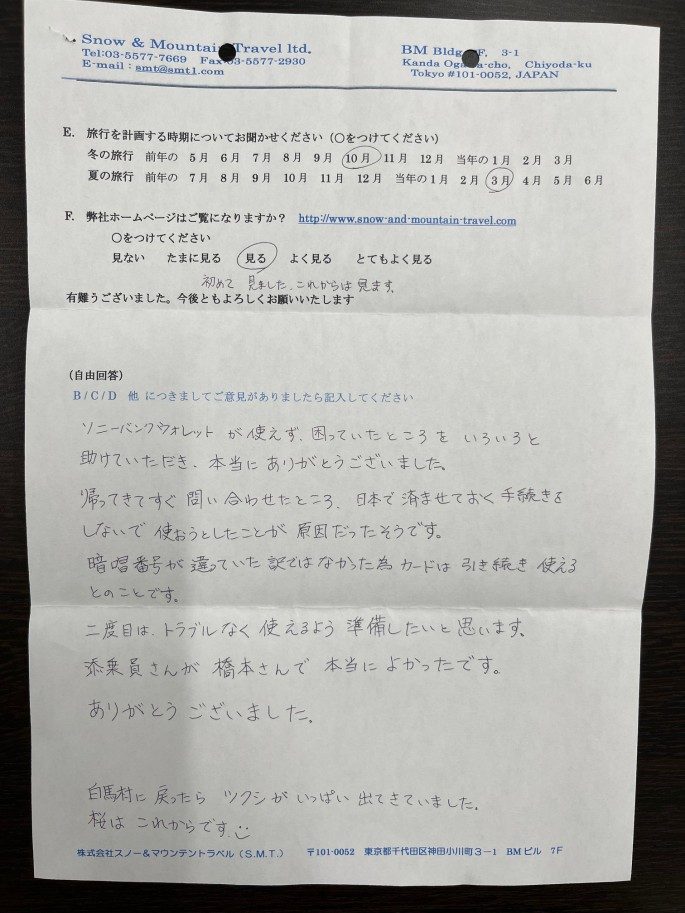 Snow & Mountain Travel ltd.
Tel:03-5577-7669 Fax 03-5577-2930
E-mail : smt@smt1.com
BM Bldg. F, 3-1
Kanda Oga a-cho, Chiyoda-ku
Tokyo #101-0052, JAPAN
E. 旅行を計画する時期についてお聞かせください（○をつけてください）
冬の旅行 前年の 5月 6月 7月 8月 9月 10月 11月 12月 当年の1月 2月 3月
夏の旅行 前年の 7月 8月 9月 10月 11月 12月 当年の1月 2月 3月 4月 5月 6月
F. 弊社ホームページはご覧になりますか？ http://www.snow-and-mountain-travel.com
○をつけてください
見ない たまに見る 見る よく見る とてもよく見る
初めて 見ました.これからは見ます.
有難うございました。今後ともよろしくお願いいたします
（自由回答）
B/C/D 他 につきましてご意見がありましたら記入してください
ソニーバンクウォレット が使えず、困っていたところを いろいろと
助けていただき、本当に ありがとうございました。
帰ってきてすぐ 問い合わせたところ、日本で 済ませておく 手続きを
しないで 使おうとしたことが 原因だったそうです。
暗唱番号が 違っていた 訳ではなかった為 カードは 引き続き 使える
とのことです。
二度目は、トラブルなく 使えるよう 準備したいと思います。
添乗員さんが 橋本さんで 本当に よかったです。
ありがとう ございました。
白馬村に 戻ったら ツクシが いっぱい 出てきていました。
桜は これからです。
株式会社スノー＆マウンテントラベル（S.M.T.） 〒101-0052 東京都千代田区神田小川町3－1 BMビル 7F